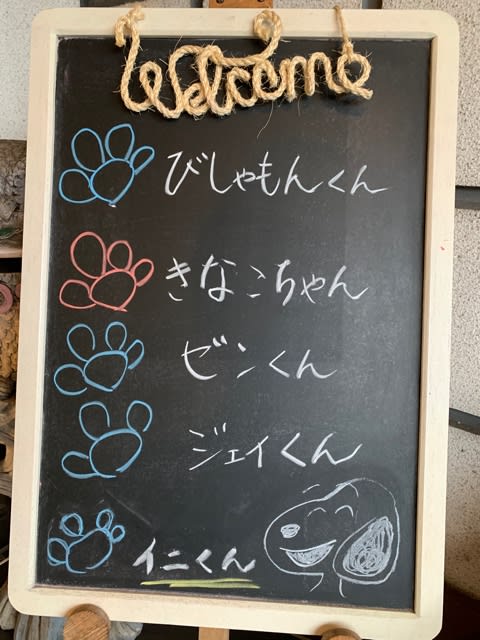 Welcome
びしゃもんくん
きなこちゃん
ゼンくん
ジェイくん
イニくん